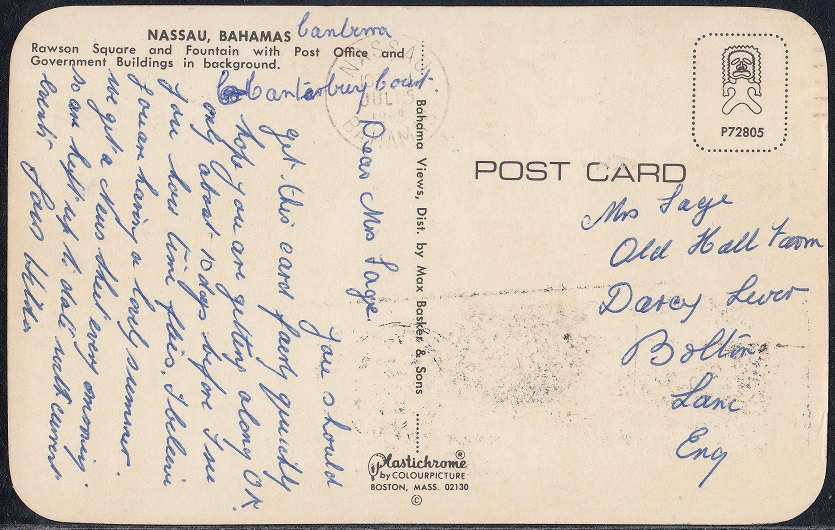 NASSAU, BAHAMAS
Rawson Square and Fountain with Post Office and
Government Buildings in background.
Canberra
Canterbury Court.
Dear Mrs Sage.
You should
get this card fairly quickly
hope you are getting along OK.
only about 10 days before I see
you how time flies. I believe
you are having a lovely summer.
we get a News sheet every morning.
so am kept up to date with current
events
NASSAU
JUL
BAHAMAS
Bahama Views, Dist. by Max Basker & Sons
Plastichrome®
by COLOURPICTURE
BOSTON, MASS. 02130
©
P72805
POST CARD
Mrs Sage
Old Hall Farm
Darcy Lever
Bolton
Lanc
Eng